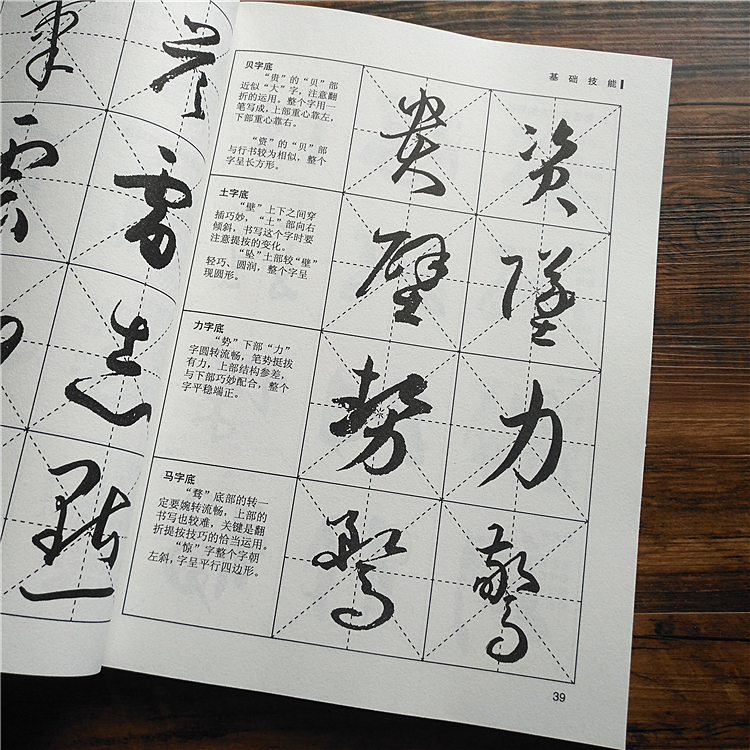 基础技能
贝字底
“贵”的“贝”部
近似“大”字，注意翻
折的运用。整个字用一
笔写成，上部重心靠左，
下部重心靠右。
“资”的“贝”部
与行书较为相似，整个
字呈长方形。
贵 资
土字底
“壁”上下之间穿
插巧妙，“土”部向右
倾斜，书写这个字时要
注意提按的变化。
“坠”土部较“壁”
轻巧、圆润，整个字呈
现圆形。
壁 墜
力字底
“势”下部“力”
字圆转流畅，笔势挺拔
有力，上部结构参差，
与下部巧妙配合，整个
字平稳端正。
势 力
马字底
“骜”底部的转一
定要婉转流畅，上部的
书写也较难，关键是翻
折提按技巧的恰当运用。
“惊”字整个字朝
左斜，字呈平行四边形。
驁 驚
39
志